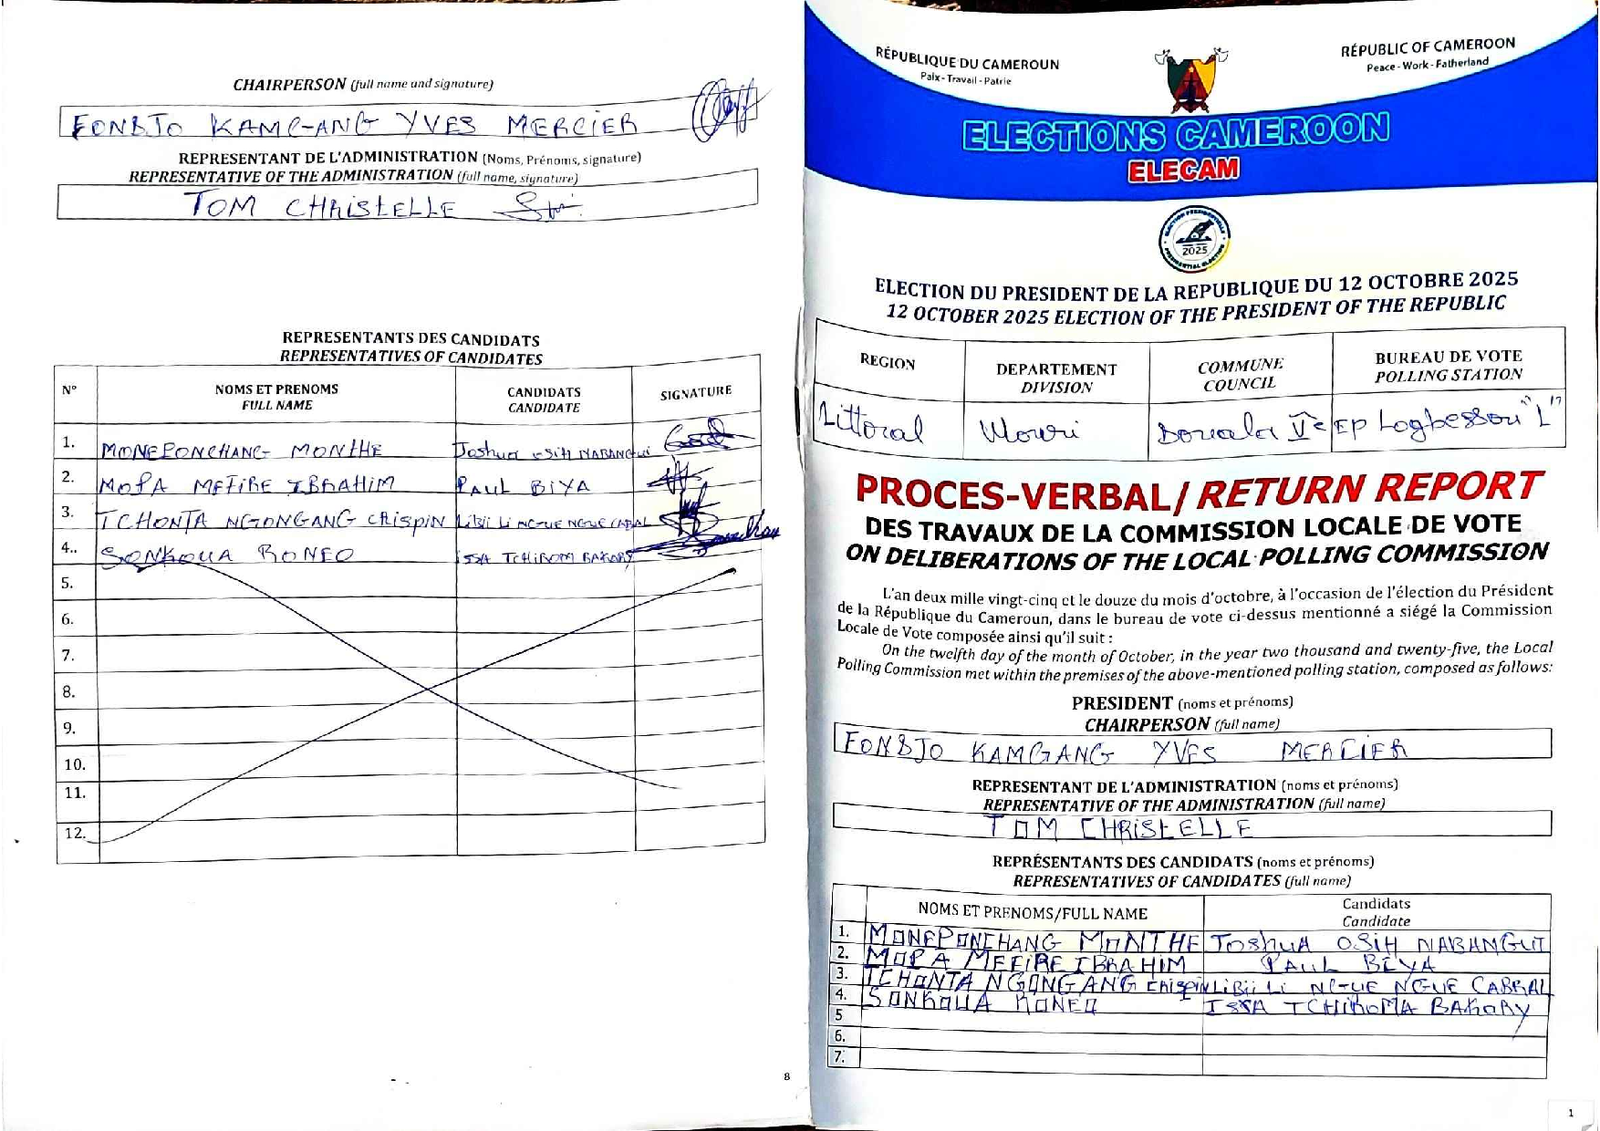 CHAIRPERSON (full name and signature)
FONBJO KAMGANG YVES MERCIER
REPRESENTANT DE L'ADMINISTRATION (Noms, Prénoms, signature)
REPRESENTATIVE OF THE ADMINISTRATION (full name, signature)
TOM CHRISTELLE
REPRESENTANTS DES CANDIDATS
REPRESENTATIVES OF CANDIDATES
N° NOMS ET PRENOMS CANDIDATS SIGNATURE
FULL NAME CANDIDATE
1. MONEPONCHANG MONTHE Joshua OSIH NABANGUI
2. MOPA MEFIRE IBRAHIM PAUL BIYA
3. TCHONTA NGONGANG CRISPIN LIBII LI NGUE NGUE CABRAL
4.. SONKOUA RONEO ISSA TCHIROMA BAKARY
5.
6.
7.
8.
9.
10.
11.
12.
8
RÉPUBLIQUE DU CAMEROUN
Paix - Travail - Patrie
RÉPUBLIC OF CAMEROON
Peace - Work - Fatherland
ELECTIONS CAMEROON
ELECAM
ELECTION PRESIDENTIELLE
2025
PRESIDENTIAL ELECTION
ELECTION DU PRESIDENT DE LA REPUBLIQUE DU 12 OCTOBRE 2025
12 OCTOBER 2025 ELECTION OF THE PRESIDENT OF THE REPUBLIC
REGION DEPARTEMENT COMMUNE BUREAU DE VOTE
DIVISION COUNCIL POLLING STATION
Littoral Wouri Douala Ve EP Logbessou "L"
PROCES-VERBAL/ RETURN REPORT
DES TRAVAUX DE LA COMMISSION LOCALE DE VOTE
ON DELIBERATIONS OF THE LOCAL POLLING COMMISSION
L'an deux mille vingt-cinq et le douze du mois d'octobre, à l'occasion de l'élection du Président
de la République du Cameroun, dans le bureau de vote ci-dessus mentionné a siégé la Commission
Locale de Vote composée ainsi qu'il suit :
On the twelfth day of the month of October, in the year two thousand and twenty-five, the Local
Polling Commission met within the premises of the above-mentioned polling station, composed as follows:
PRESIDENT (noms et prénoms)
CHAIRPERSON (full name)
FONBJO KAMGANG YVES MERCIER
REPRESENTANT DE L'ADMINISTRATION (noms et prénoms)
REPRESENTATIVE OF THE ADMINISTRATION (full name)
TOM CHRISTELLE
REPRÉSENTANTS DES CANDIDATS (noms et prénoms)
REPRESENTATIVES OF CANDIDATES (full name)
NOMS ET PRENOMS/FULL NAME Candidats
Candidate
1. MONEPONCHANG MONTHE Joshua OSIH NABANGUI
2. MOPA MEFIRE IBRAHIM PAUL BIYA
3. TCHONTA NGONGANG Crispin LiBii Li NGUE NGUE CABRAL
4. SONKOUA RONEO ISSA TCHIROMA BAKARY
5
6.
7.
1